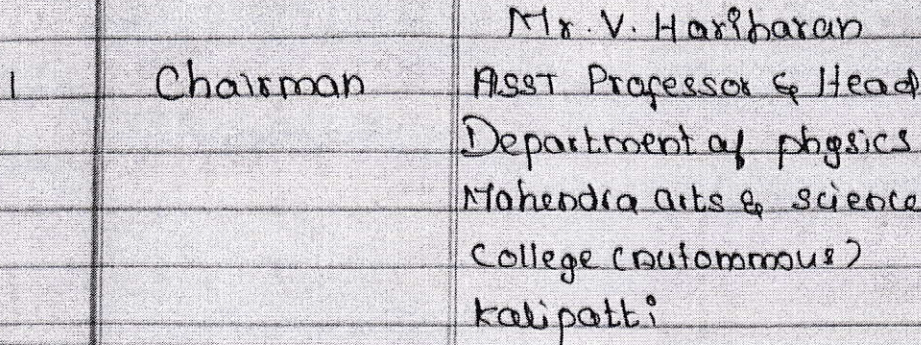 Mr. V. Hariharan
1 Chairman Asst Professor & Head
Department of physics
Mahendra arts & science
College (autonomous)
Kalipatti